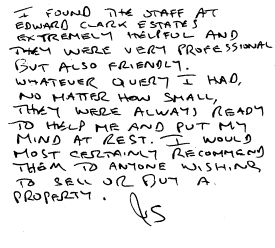 I FOUND THE STAFF AT
EDWARD CLARK ESTATES
EXTREMELY HELPFUL AND
THEY WERE VERY PROFESSIONAL
BUT ALSO FRIENDLY.
WHATEVER QUERY I HAD,
NO MATTER HOW SMALL,
THEY WERE ALWAYS READY
TO HELP ME AND PUT MY
MIND AT REST. I WOULD
MOST CERTAINLY RECOMMEND
THEM TO ANYONE WISHING
TO SELL OR BUY A
PROPERTY.